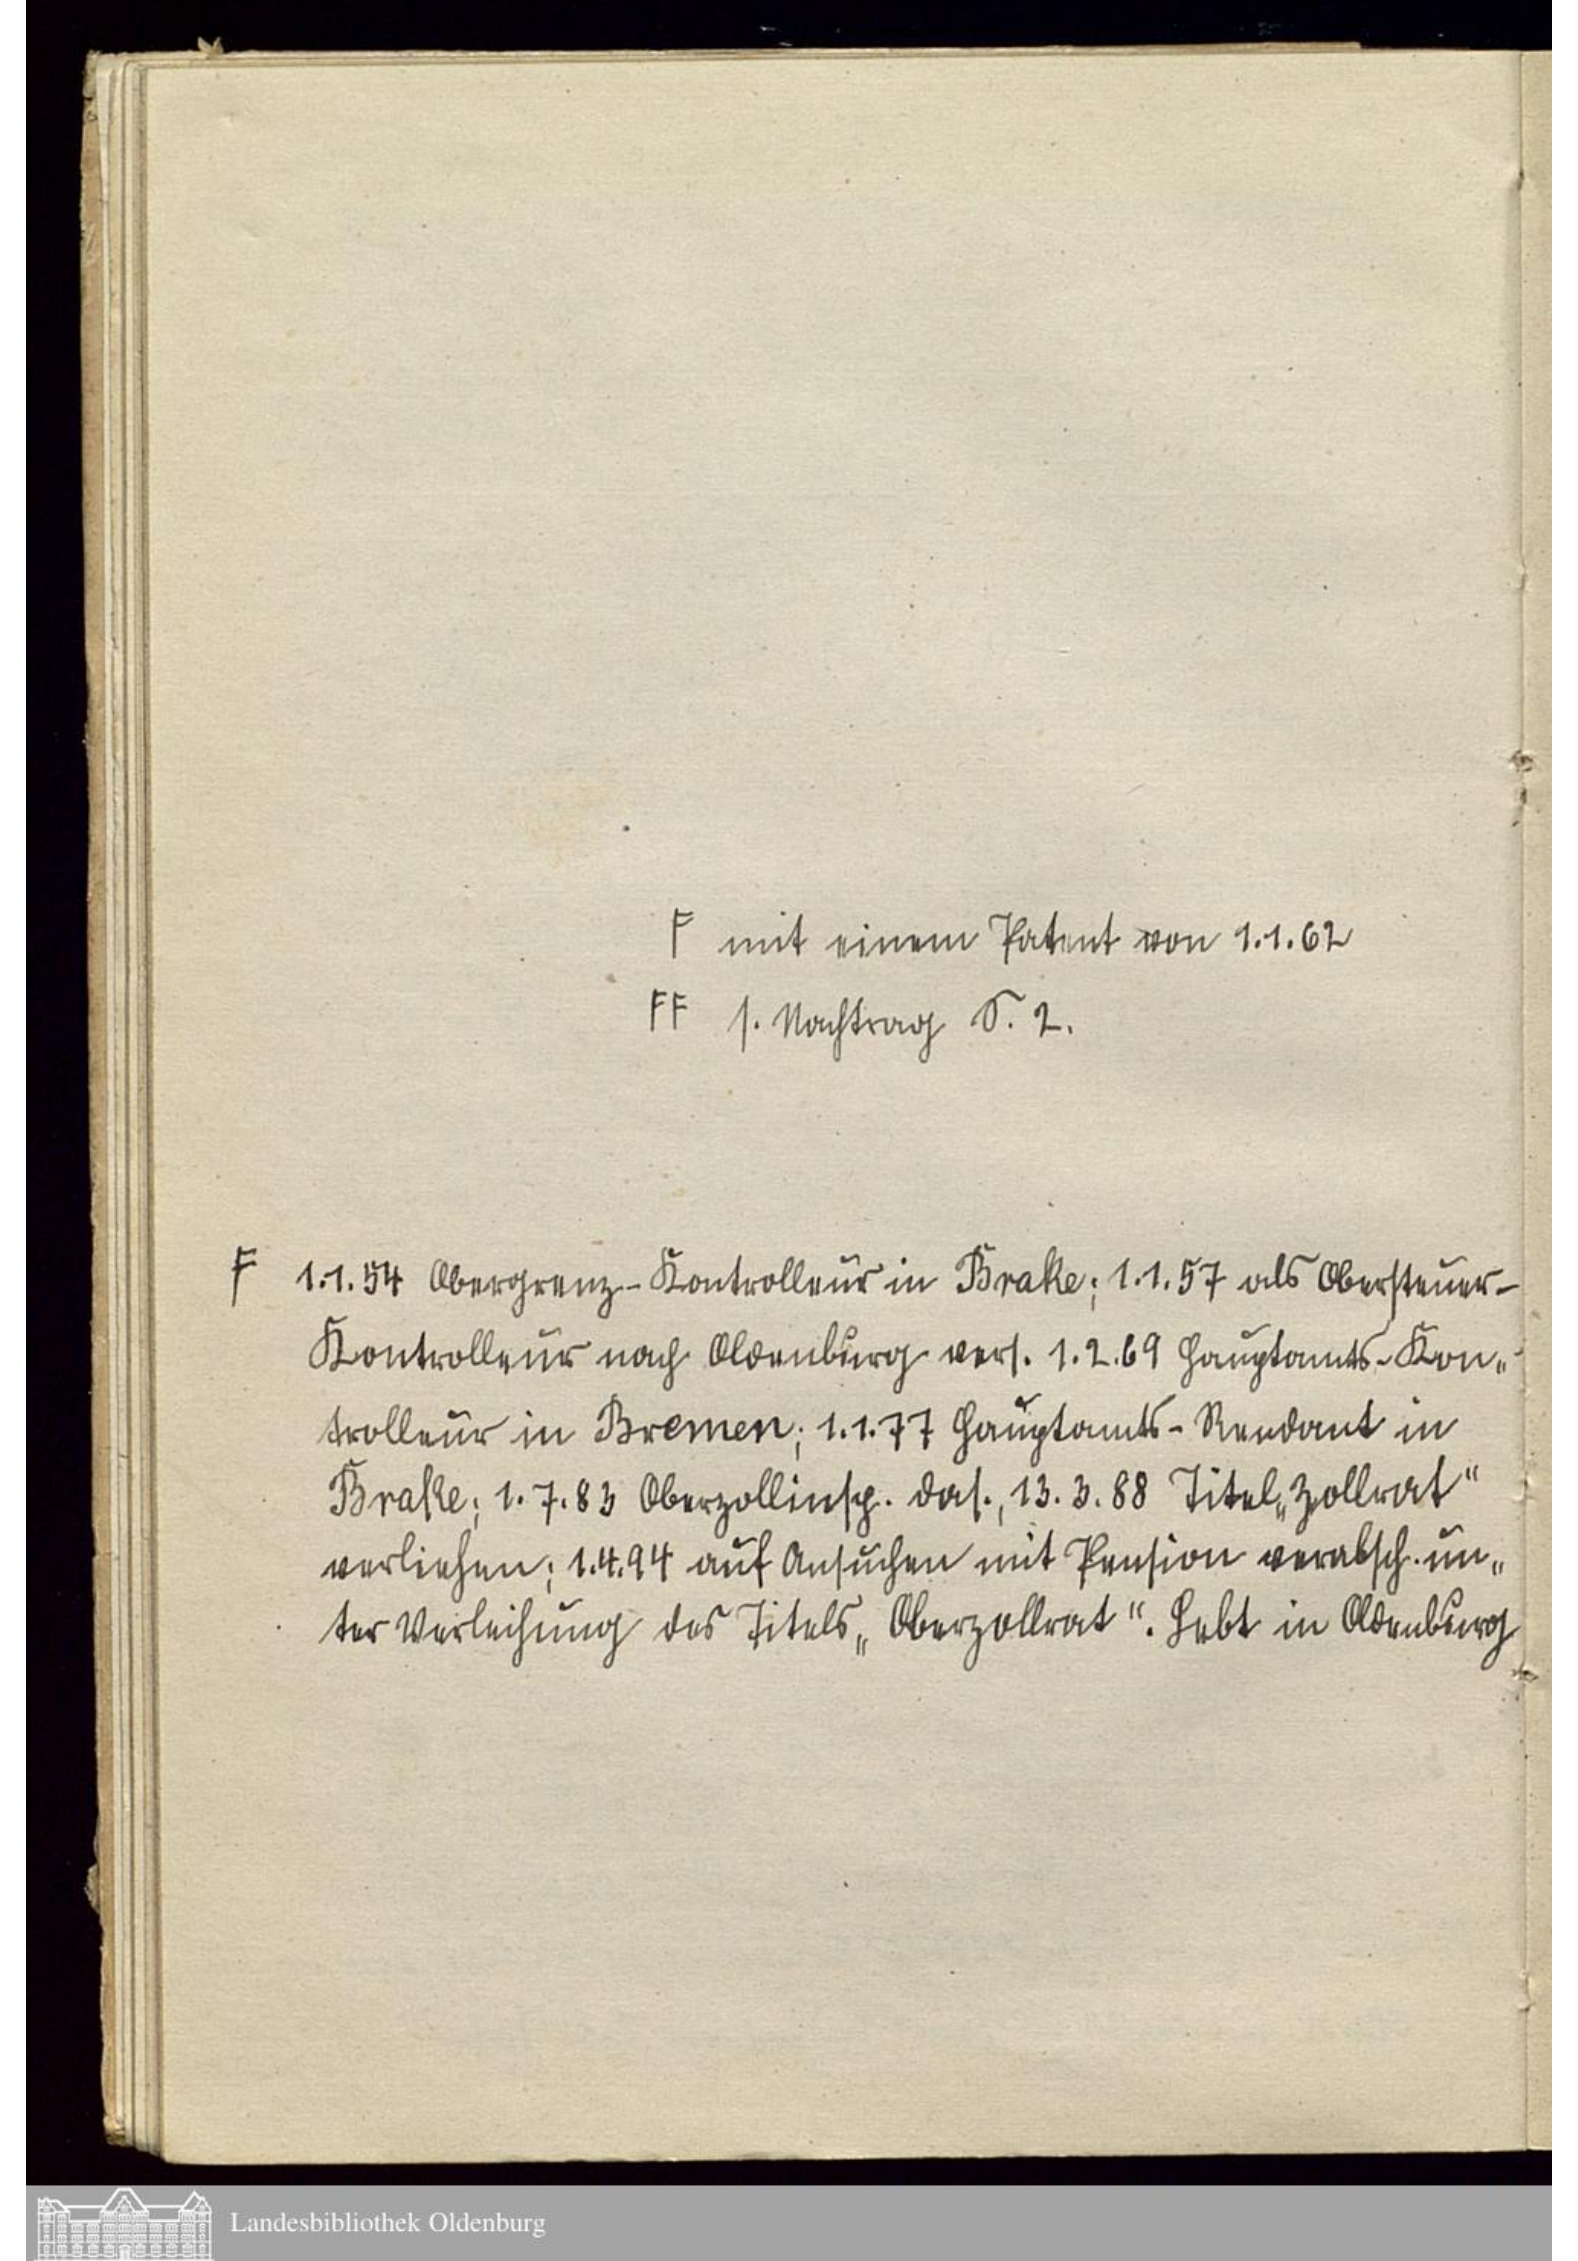 F mit einem Patent von 1.1.62
FF s. Nachtrag S. 2.
F 1.1.54 Obergrenz-Kontrolleur in Brake; 1.1.57 als Obersteuer-
Kontrolleur nach Oldenburg vers. 1.2.69 Hauptamts-Kon„
trolleur in Bremen; 1.1.77 Hauptamts-Rendant in
Brake; 1.7.83 Oberzollinsp. das., 13.3.88 Titel „Zollrat"
verliehen; 1.4.94 auf Ansuchen mit Pension verabsch. un„
ter Verleihung des Titels „Oberzollrat". Lebt in Oldenburg
Landesbibliothek Oldenburg